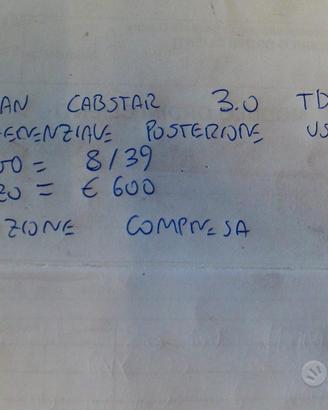 AN CABSTAR 3.0 TD
FERENZIALE POSTERIORE US
PO = 8/39
ZO = € 600
ZIONE COMPRESA